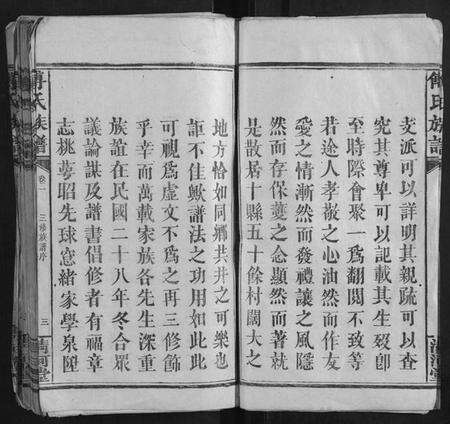 傅氏族譜
支派可以詳明其親疏可以查
究其尊卑可以記載其生殁卽
至時際會聚一爲翻閱不致等
若途人孝敬之心油然而作友
愛之情漸然而發禮讓之風隱
然而存保䕫之念顯然而著就
是散居十縣五十餘村闊大之
地方恰如同鄕共井之可樂也
詎不佳歟譜法之功用如此此
可視爲虛文不爲之再三修飾
乎幸而萬載家族各先生深重
族誼在民國二十八年冬合眾
議論謀及譜書倡修者有福章
志桃夢昭先球寬緒家學泉陞
傅氏族譜
卷一
三修族譜序
三